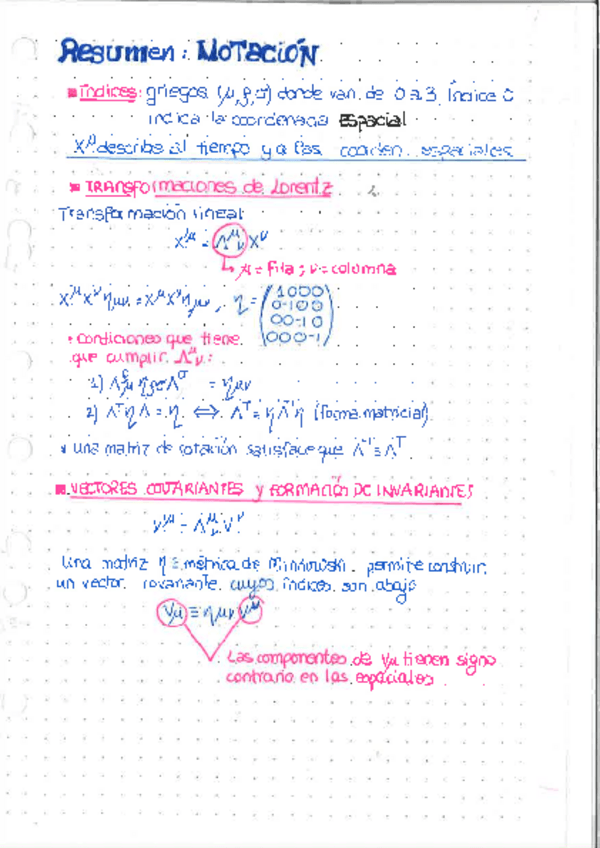 Resumen: NOTACIÓN
Índices: griegos (μ, ρ, σ) donde van de 0 a 3. Índice 0
indica la coordenada ESPACIAL
X^μ describe al tiempo y a las coorden. espaciales
TRANSFORMACIONES DE LORENTZ
Transformación lineal
X'^μ = Λ^μ_ν X^ν
↳ μ = fila ; ν = columna
X'^μ X'^ν η_μν = X^μ X^ν η_μν , η = (1 0 0 0
0 -1 0 0
0 0 -1 0
0 0 0 -1)
• condiciones que tiene
que cumplir Λ^μ_ν :
1) Λ^ρ_μ η_ρσ Λ^σ = η_μν
2) Λ^T η Λ = η ⟺ Λ^T = η Λ^-1 η (forma matricial)
• una matriz de rotación satisface que Λ^-1 = Λ^T
VECTORES COVARIANTES y FORMACIÓN DE INVARIANTES
V'^μ = Λ^μ_ν V^ν
Una matriz η ≡ métrica de Minkowski permite construir
un vector covariante cuyos índices son abajo
V_μ ≡ η_μν V^μ
Las componentes de V_μ tienen signo
contrario en las espaciales